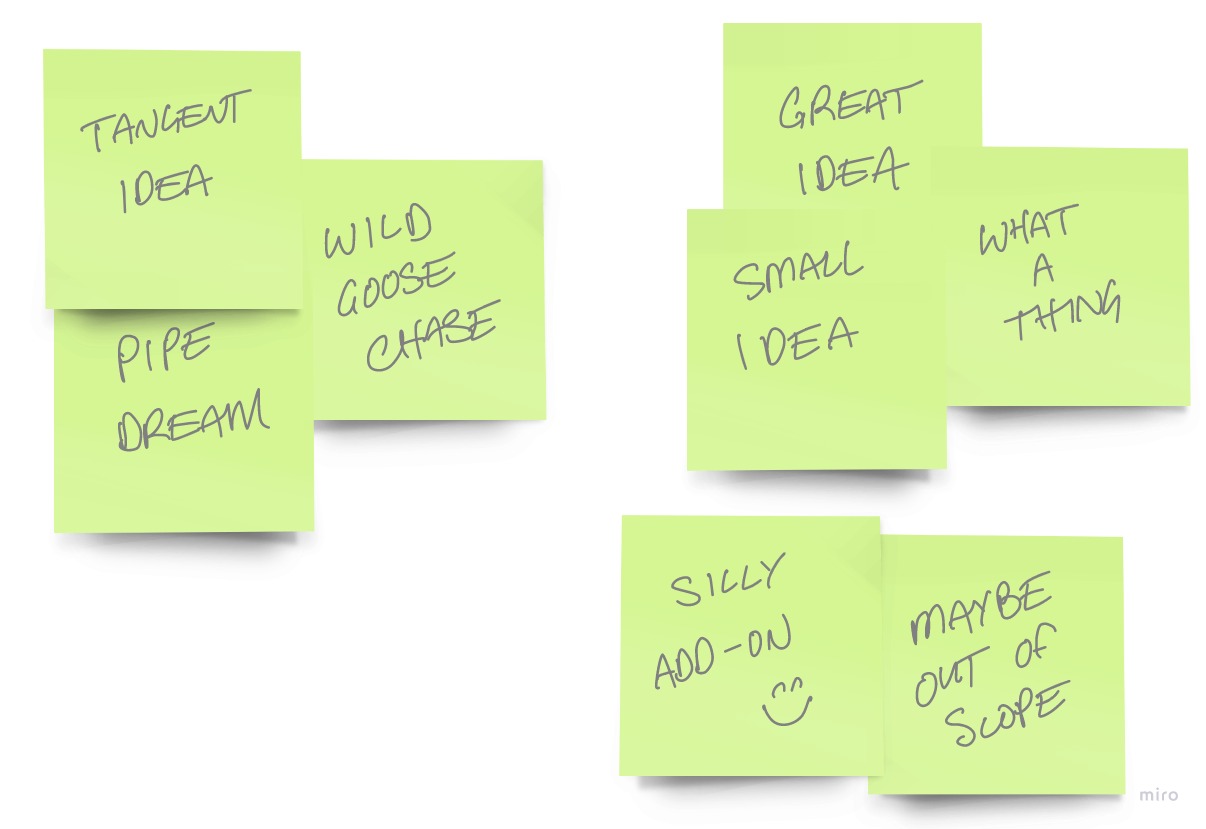 TANGENT
IDEA
WILD
GOOSE
CHASE
PIPE
DREAM
GREAT
IDEA
WHAT
A
THING
SMALL
IDEA
SILLY
ADD-ON
MAYBE
OUT OF
SCOPE
miro